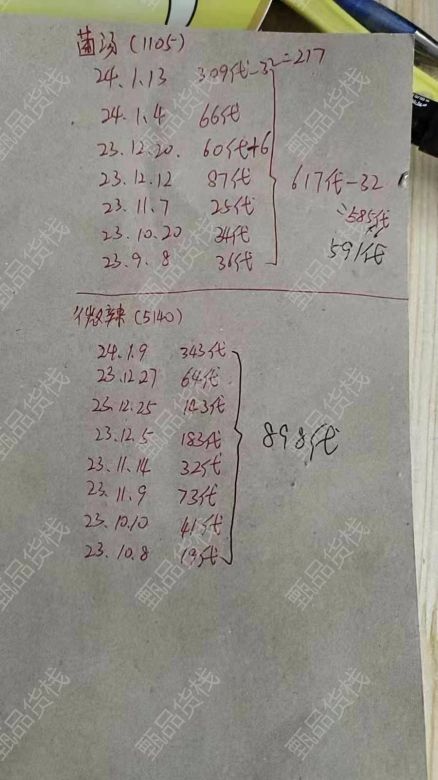 菌汤(1105)
24.1.13 309代-32=217
24.1.4 66代
23.12.20. 60代+6
23.12.12 87代
23.11.7 25代
23.10.20 34代
23.9.8 36代
617代-32
585代
+6
591代
微辣(5140)
24.1.9 343代
23.12.27 64代
23.12.25 143代
23.12.5 183代
23.11.14 32代
23.11.9 73代
23.10.10 41代
23.10.8 19代
898代
甄品货栈